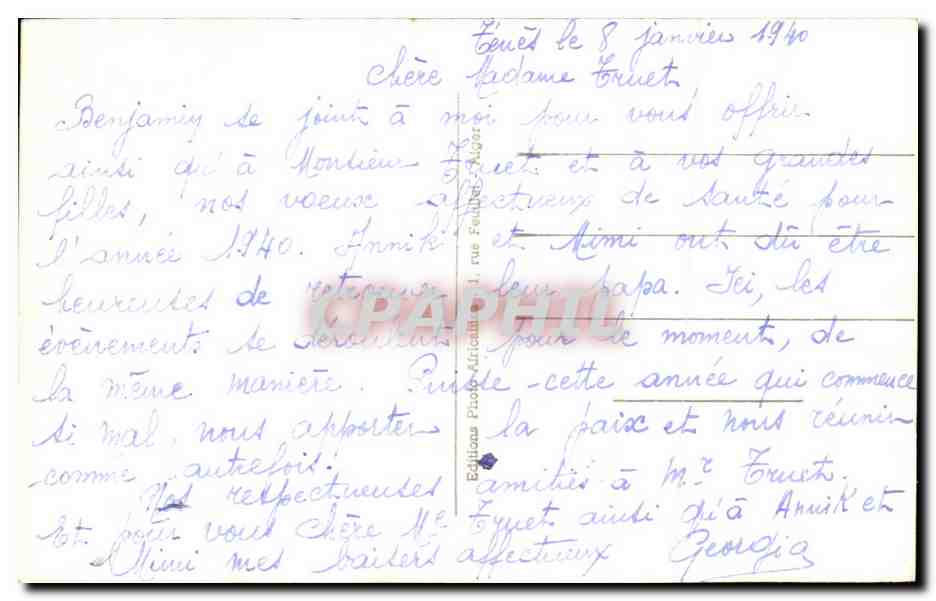 Ténès le 8 janvier 1940
Chère Madame Truet
Benjamin se joint à moi pour vous offrir
ainsi qu'à Monsieur Truet et à vos grandes
filles, nos voeux affectueux de santé pour
l'année 1940. Annik et Mimi ont dû être
heureuses de retrouver leur papa. Ici, les
évènements se déroulent pour le moment, de
la même manière. Puisse cette année qui commence
si mal, nous apporter la paix et nous réunir
comme autrefois.
Nos respectueuses amitiés à Mr Truet.
Et pour vous Chère Me Truet ainsi qu'à Annik et
Mimi mes baisers affectueux Georgia
Editions Photo-Africaines, rue Feuillet - Alger
CPAPHIL